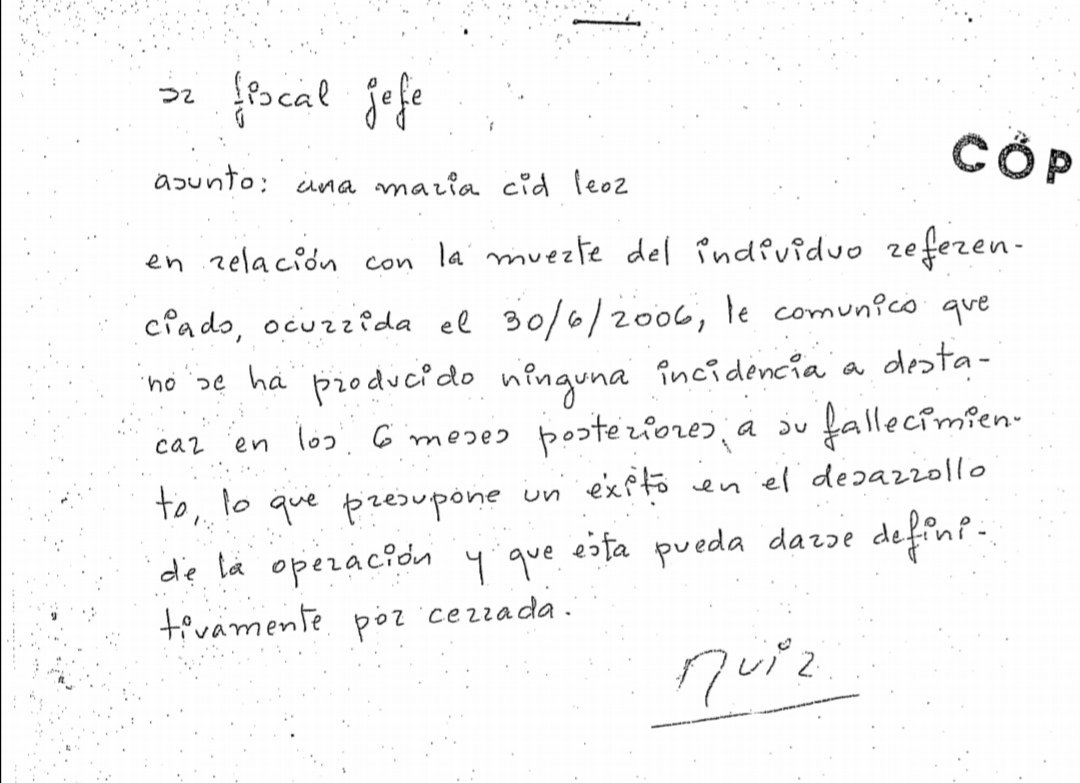 sr fiscal jefe
CÓP
asunto: ana maria cid leoz
en relación con la muerte del individuo referen-
ciado, ocurrida el 30/6/2006, le comunico que
no se ha producido ninguna incidencia a desta-
car en los 6 meses posteriores a su fallecimien-
to, lo que presupone un exito en el desarrollo
de la operación y que esta pueda darse defini-
tivamente por cerrada.
Ruiz